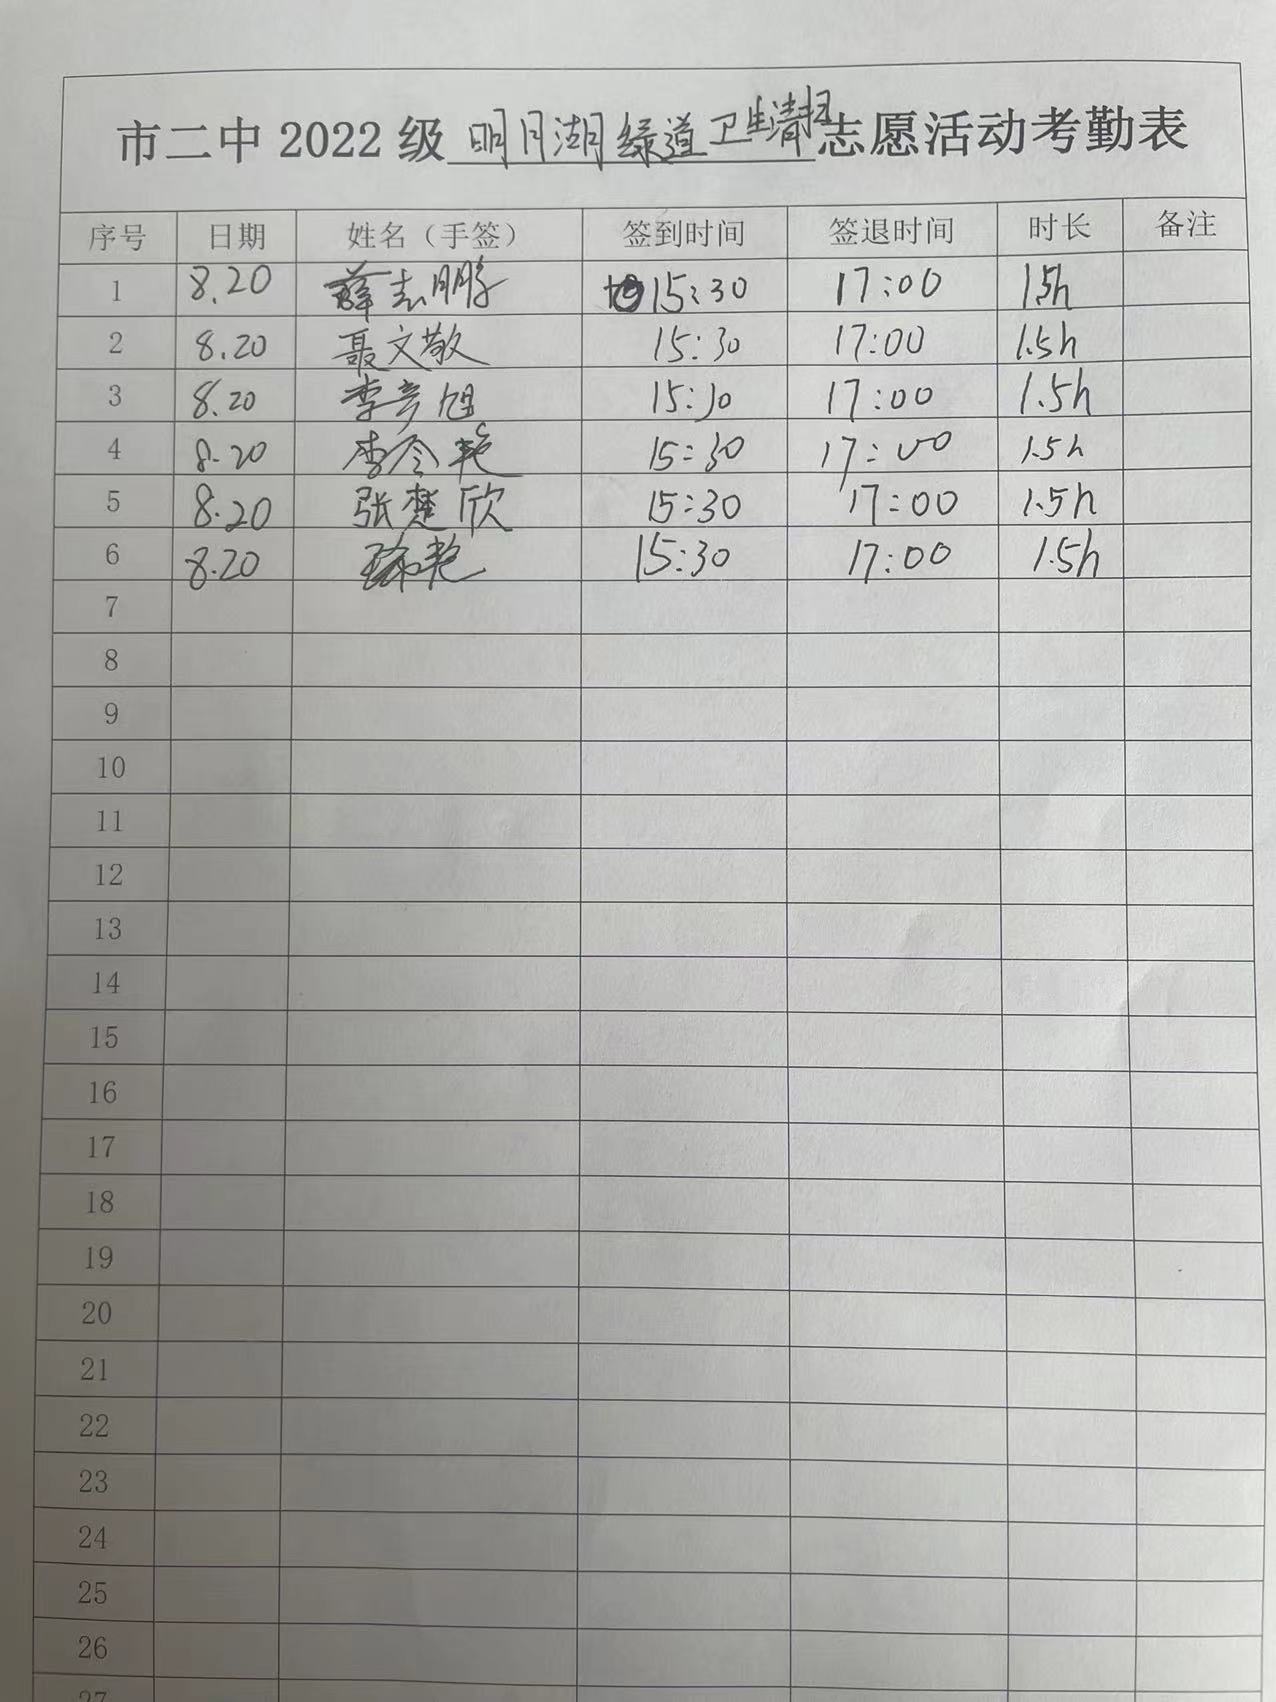 市二中 2022 级 明月湖绿道卫生清扫 志愿活动考勤表
序号 日期 姓名（手签） 签到时间 签退时间 时长 备注
1 8.20 薛志鹏 15:30 17:00 1.5h
2 8.20 聂文敬 15:30 17:00 1.5h
3 8.20 李彦旭 15:30 17:00 1.5h
4 8.20 李令艳 15:30 17:00 1.5h
5 8.20 张楚欣 15:30 17:00 1.5h
6 8.20 15:30 17:00 1.5h
7
8
9
10
11
12
13
14
15
16
17
18
19
20
21
22
23
24
25
26
27